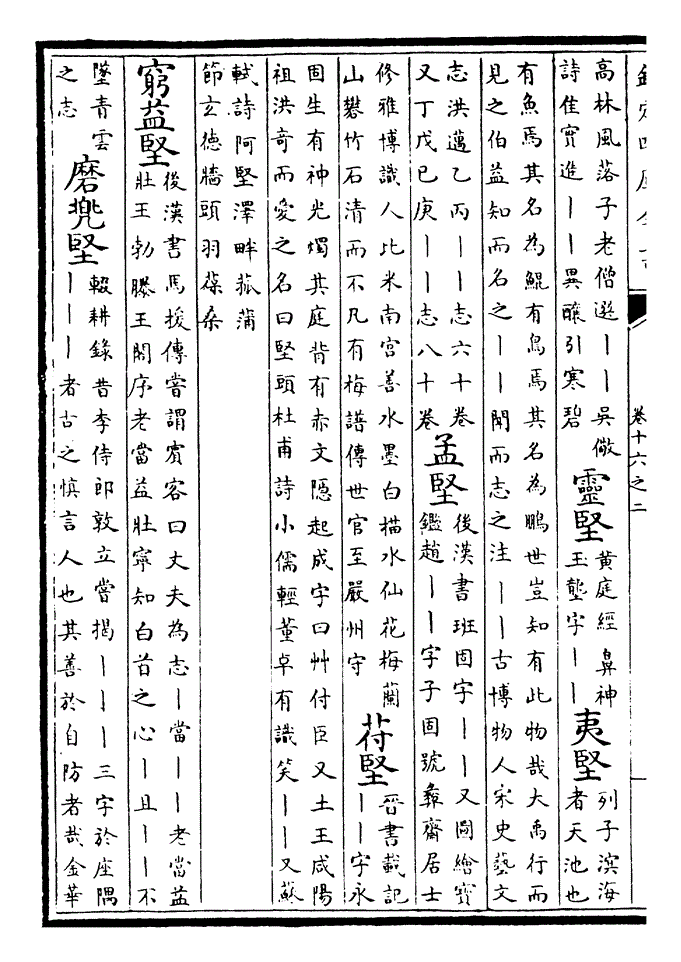 卷十六之二
高林風落子老僧遊丨丨吳儆
詩佳實進丨丨異釀引寒碧
靈堅
黃庭經鼻神
玉壟字丨丨
夷堅
列子溟海
者天池也
有魚焉其名為鯤有鳥焉其名為鵬世豈知有此物哉大禹行而
見之伯益知而名之丨丨聞而志之注丨丨古博物人宋史藝文
志洪邁乙丙丨丨志六十卷
又丁戊己庚丨丨志八十卷
孟堅
後漢書班固字丨丨又圖繪寶
鑑趙丨丨字子固號彝齋居士
修雅博識人比米南宮善水墨白描水仙花梅蘭
山礬竹石清而不凡有梅譜傳世官至嚴州守
苻堅
晉書載記
丨丨字永
固生有神光燭其庭背有赤文隱起成字曰艸付臣又土王咸陽
祖洪奇而愛之名曰堅頭杜甫詩小儒輕董卓有識笑丨丨又蘇
軾詩阿堅澤畔菰蒲
節玄德牆頭羽葆桑
窮益堅
後漢書馬援傳嘗謂賓客曰丈夫為志丨當丨丨老當益
壯王勃滕王閣序老當益壯寧知白首之心丨且丨丨不
墜青雲
之志
磨兜堅
輟耕錄昔李侍郎敦立嘗揭丨丨丨三字於座隅
丨丨丨者古之慎言人也其善於自防者哉金華